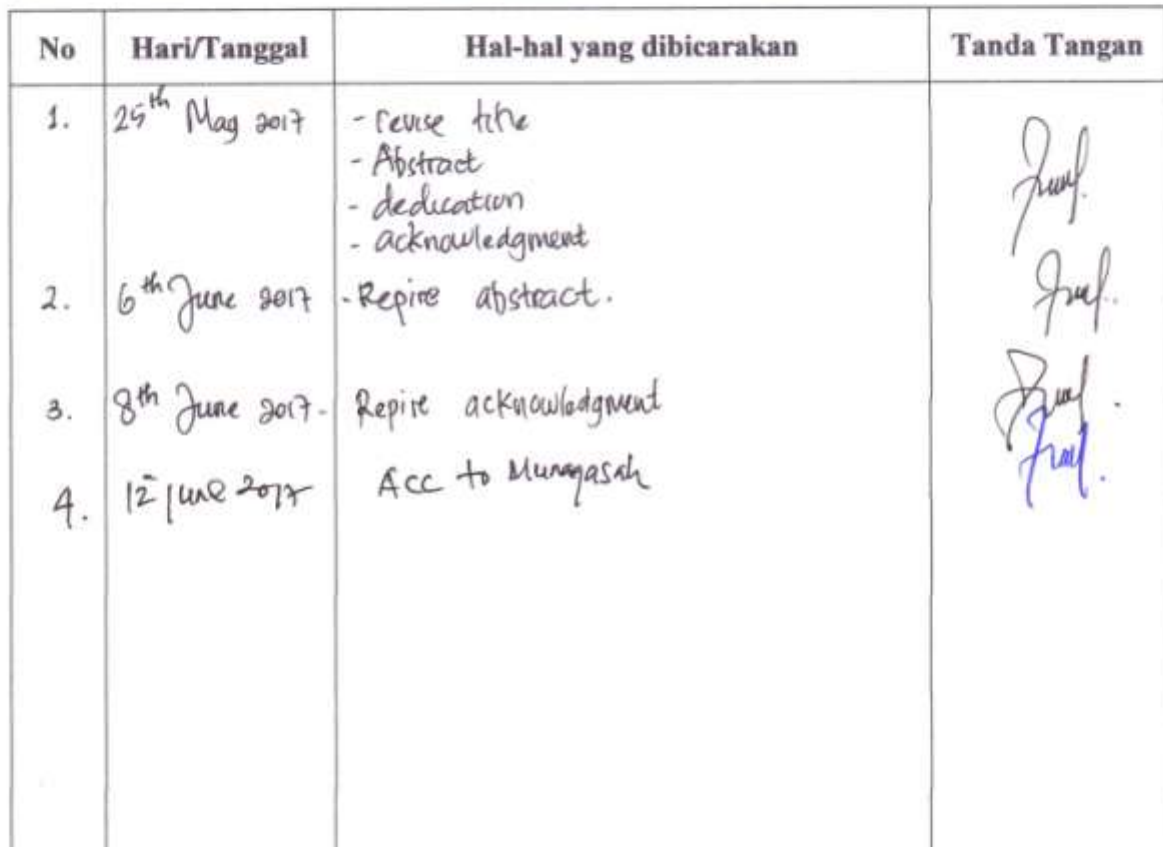 No Hari/Tanggal Hal-hal yang dibicarakan Tanda Tangan
1. 25th May 2017 - revise title
- Abstract
- dedication
- acknowledgment
2. 6th June 2017 - Repire abstract.
3. 8th June 2017. Repire acknowledgment
4. 12 June 2017 Acc to Munaqasah